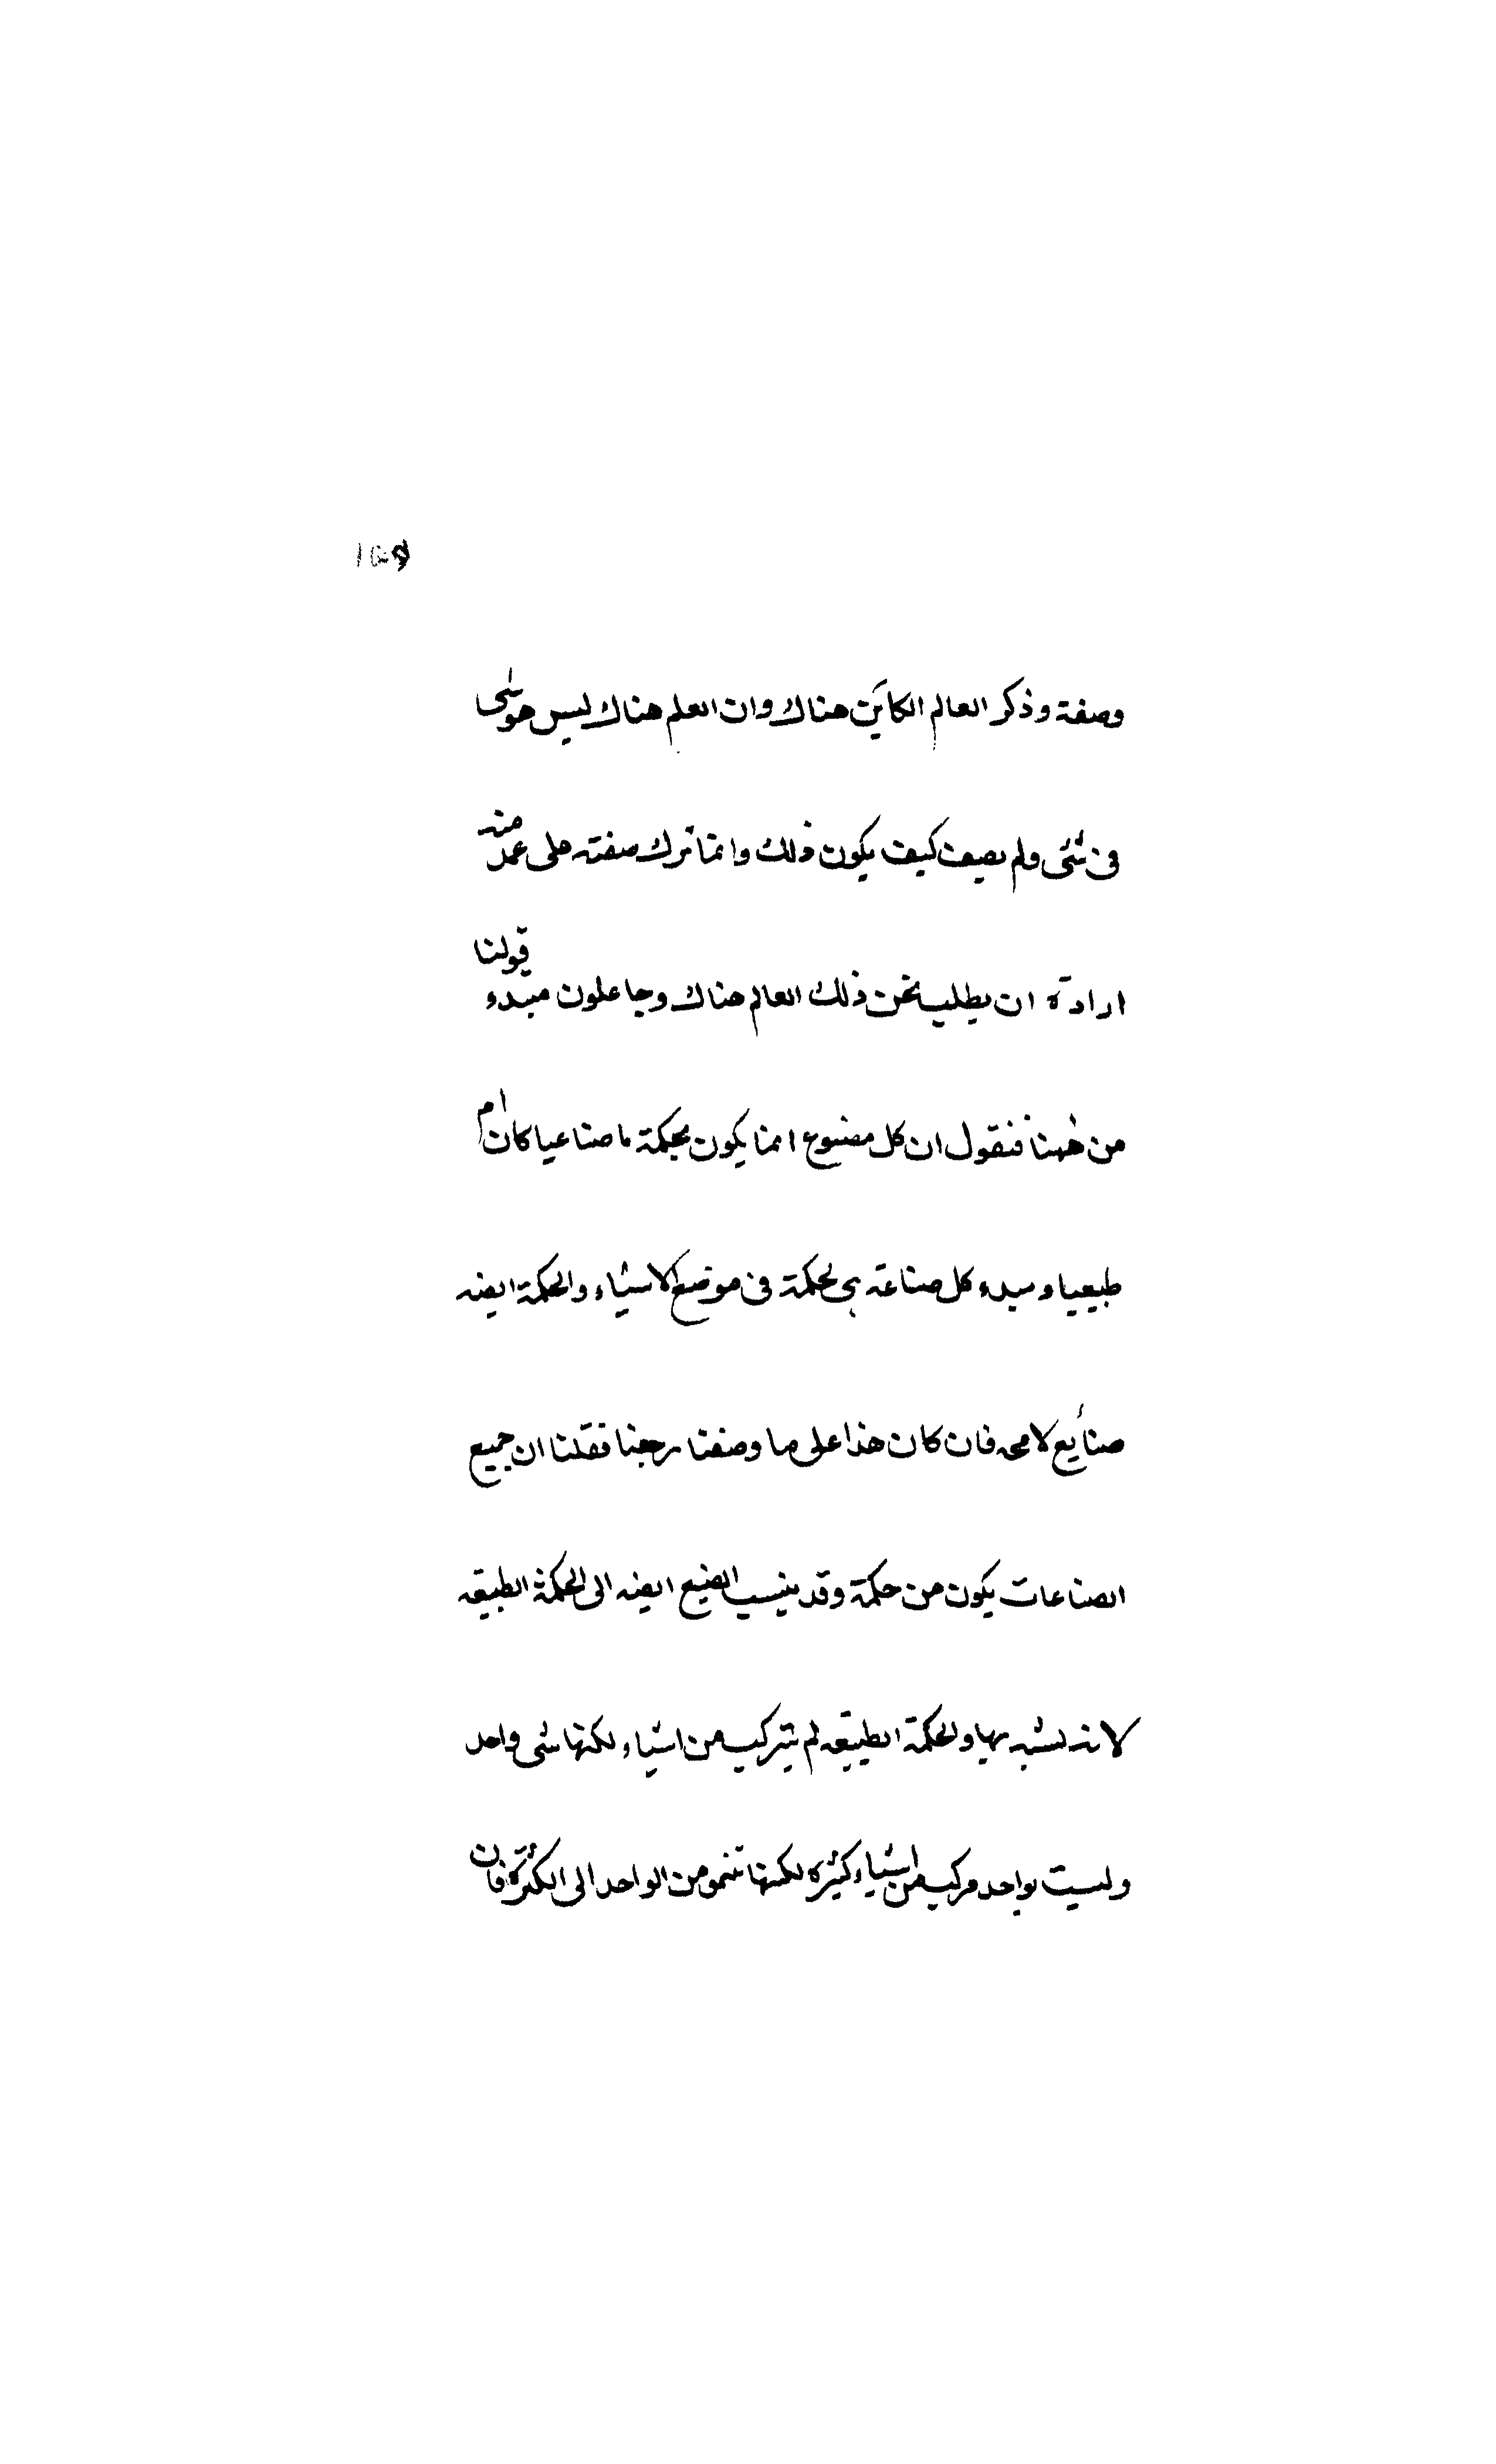 وصفة وذكر العالم الكاين هناك وان العلم هناك ليس هو شى
فى شئى ولم يصف كيف يكون ذلك وانما ترك صفته على عمد منه
ارادة ان يطلب نحن ذلك العالم هناك وجاعلون مبدء قولنا
من ههنا فنقول ان كل مصنوع انما يكون بحكمة ما صناعيا كان ام
طبيعيا ومبدء كل صناعة هى لحكمة فى موضع الاشياء والحكمة ايضه
صنأيع لامحه فان كان هذا على ما وصفنا رجعنا فقلنا ان جميع
الصناعات يكون من حكمة وقد ينسب الصنيع ايضه الى الحكمة الطبيعه
لانه يشبه بها والحكمة الطبيعه لم يتركب من اشياء لكنها شى واحد
وليست بواحد مركب من اشياء كثيره لكنها تنمو من الواحد الى الكثرة فان